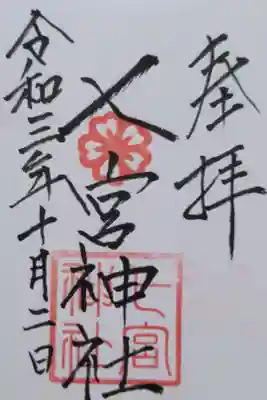 奉拝
七宮神社
七宮
神社
令和三年十月二日